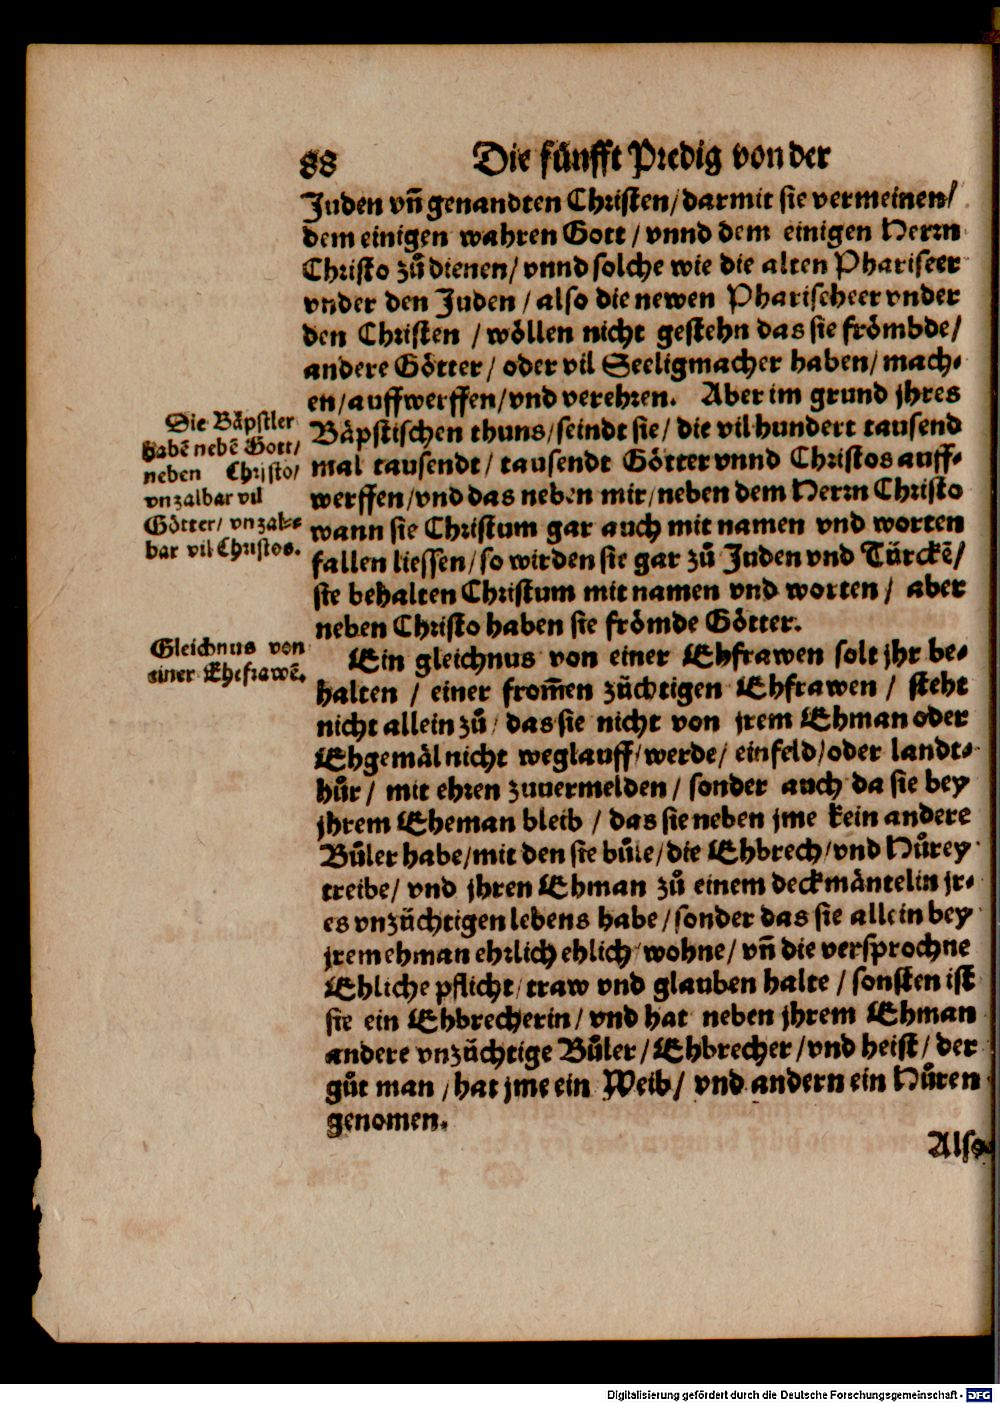 88 Die fünfft Predig von der
Juden vn̄ genandten Christen/ darmit sie vermeinen/
dem einigen wahren Gott / vnnd dem einigen Herrn
Christo zů dienen/ vnnd solche wie die alten Phariseer
vnder den Juden / also die newen Pharischeer vnder
den Christen / wöllen nicht gestehn das sie frömbde/
andere Götter/ oder vil Seeligmacher haben/ mach-
en/ auffwerffen/ vnd verehren. Aber im grund jhres
Bäpstischen thuns/ seindt sie/ die vil hundert tausend
mal tausendt/ tausendt Götter vnnd Christos auff-
werffen/ vnd das neben mir/ neben dem Herrn Christo
wann sie Christum gar auch mit namen vnd worten
fallen liessen/ so wirden sie gar zů Juden vnd Türckē/
sie behalten Christum mit namen vnd worten / aber
neben Christo haben sie frömde Götter.
Die Bäpstler
habē nebē Gott/
neben Christo/
vnzalbar vil
Götter/ vnzal-
bar vil Christos.
Gleichnus von
einer Ehefrawē.
Ein gleichnus von einer Ehfrawen solt jhr be-
halten / einer from̄en züchtigen Ehfrawen / steht
nicht allein zů/ das sie nicht von jrem Ehman oder
Ehgemäl nicht weglauff/ werde/ ein feld/ oder landt-
hůr / mit ehren zuuermelden / sonder auch da sie bey
jhrem Eheman bleib / das sie neben jme kein andere
Bůler habe/ mit den sie bůle/ die Ehbrech/ vnd Hůrey
treibe/ vnd jhren Ehman zů einem deckmäntelin jr-
es vnzüchtigen lebens habe/ sonder das sie allein bey
jrem ehman ehrlich ehlich wohne/ vn̄ die versprochne
Ehliche pflicht/ traw vnd glauben halte / sonsten ist
sie ein Ehbrecherin/ vnd hat neben jhrem Ehman
andere vnzüchtige Bůler/ Ehbrecher/ vnd heist/ der
gůt man / hat jme ein Weib/ vnd andern ein Hůren
genomen.
Also
Digitalisierung gefördert durch die Deutsche Forschungsgemeinschaft - DFG